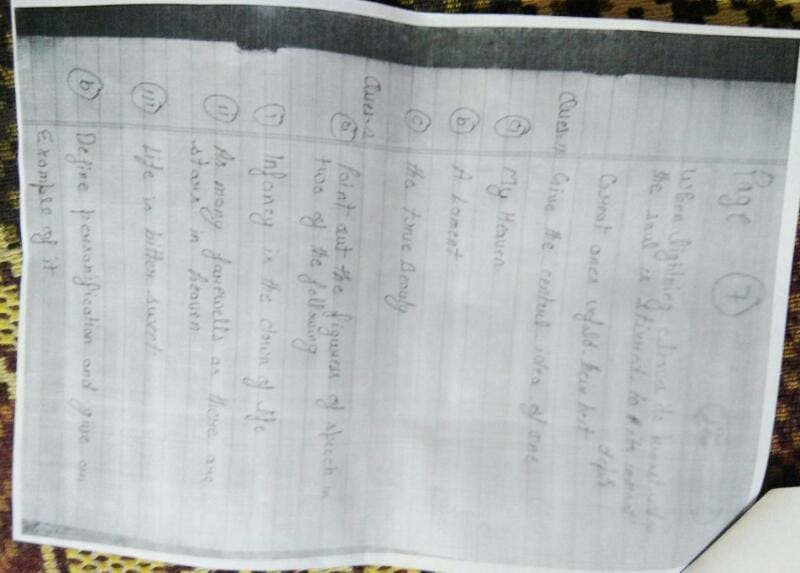 Page 7
When lightning its
the soul is stirred to its inmost
Cannot once unfold
Give the central idea of one
(a) My Heaven
(b) A Lament
(c) the true Beauty
Ques:
(a) Point out the figuress of speech in
two of the following
(i) Infancy is the dawn of life
(ii) As many farewells as there are
stars in heaven
(iii) Life is bitter sweet
(b) Define personification and give an
Example of it